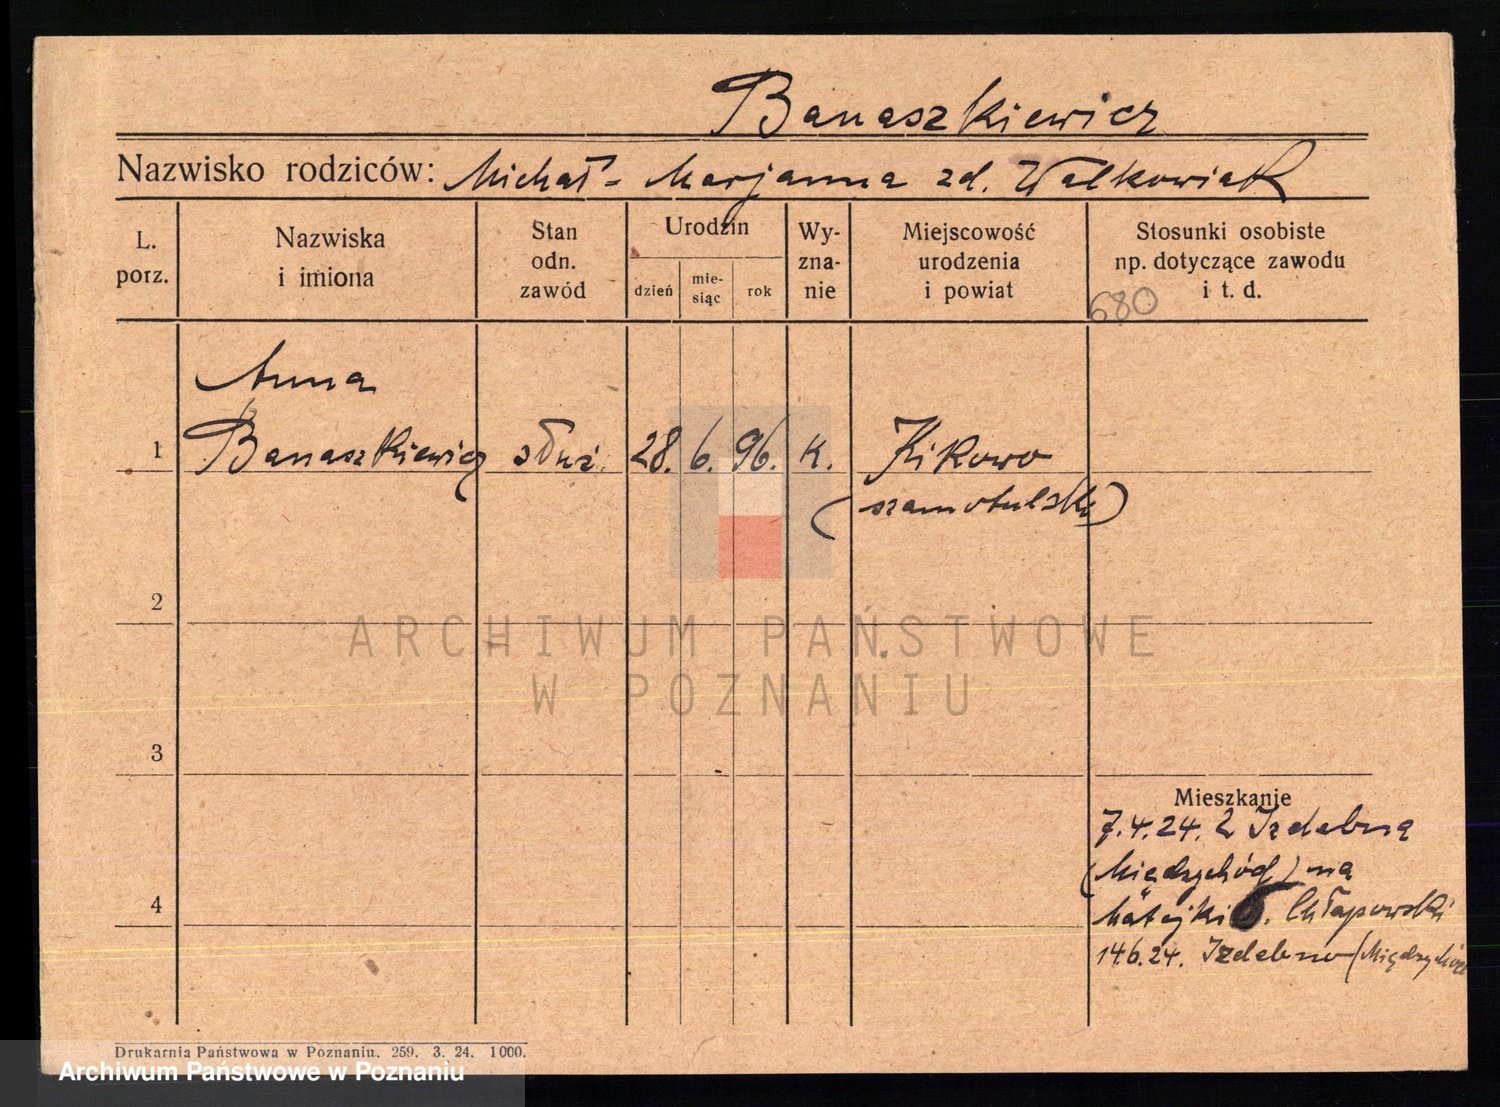 Banaszkiewicz
Nazwisko rodziców: Michał - Marjanna zd. Walkowiak
L. porz.
Nazwiska i imiona
Stan odn. zawód
Urodzin
dzień
mie-
siąc
rok
Wy-
zna-
nie
Miejscowość urodzenia i powiat
Stosunki osobiste np. dotyczące zawodu i t. d.
680
Anna
1 Banaszkiewicz służ. 28. 6. 96. k. Kikowo
(szamotulski)
2
ARCHIWUM PAŃSTWOWE
W POZNANIU
3
Mieszkanie
7.4.24. z Izdebna
(Międzychód) na
4 Matejki 6. Chłapowski
14.6.24. Izdebno (Międzychód
Drukarnia Państwowa w Poznaniu. 259. 3. 24. 1000.
Archiwum Państwowe w Poznaniu